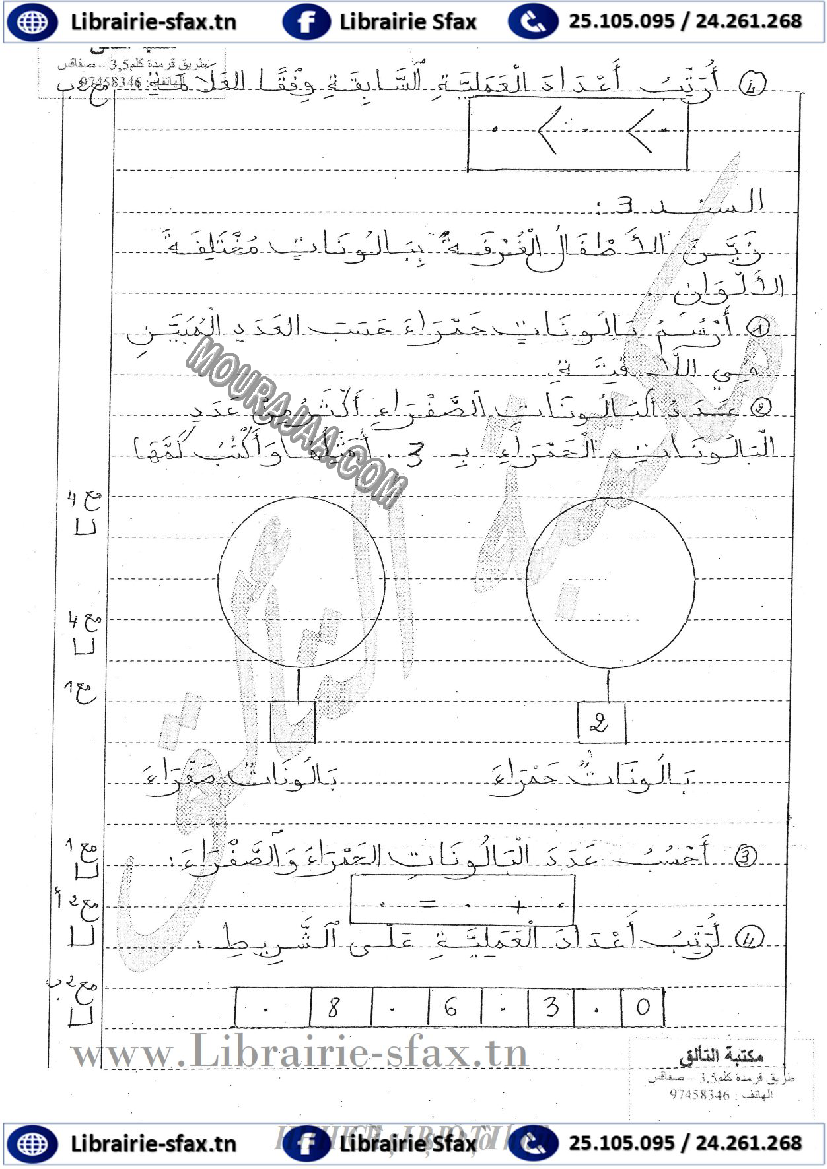 Librairie-sfax.tn Librairie Sfax 25.105.095 / 24.261.268
طريق قرمدة كلم3,5 .. صفاقس
الهاتف: 97458346
④ أُرَتِّبُ أَعْدَادَ الْعَمَلِيَّةِ السَّابِقَةِ وِفْقًا العَلَامَةِ مع2ب
. < . < .
السند 3 :
زَيَّنَ الأَطْفَالُ الْغُرْفَةَ بِبَالُونَاتٍ مُخْتَلِفَةِ
الأَلْوَانِ
① أَرْسُمُ بَالُونَاتٍ حَمْرَاءَ حَسَبَ العَدَدِ الْمُبَيَّنِ
فِي اللَّافِتَةِ
② عَدَدُ الْبَالُونَاتِ الصَّفْرَاءِ أَكْثَرُ مِنْ عَدَدِ
الْبَالُونَاتِ الْحَمْرَاءِ بِـ 3 . أُمَثِّلُهَا وَأَكْتُبُ كَمَّهَا
MOURAJAA.COM
مع 4
مع 4
مع 1
2
بَالُونَاتٌ حَمْرَاءَ
بَالُونَاتٌ صَفْرَاءَ
③ أَحْسُبُ عَدَدَ الْبَالُونَاتِ الحَمْرَاءَ وَالصَّفْرَاءَ : مع 1
. = . + . مع 2 أ
④ أُرَتِّبُ أَعْدَادَ الْعَمَلِيَّةِ عَلَى الشَّرِيطِ :
. 8 . 6 . 3 . 0 مع 2 ب
www.Librairie-sfax.tn
مكتبة التألق
طريق قرمدة كلم3,5 .. صفاقس
الهاتف : 97458346
Librairie-sfax.tn Librairie Sfax 25.105.095 / 24.261.268